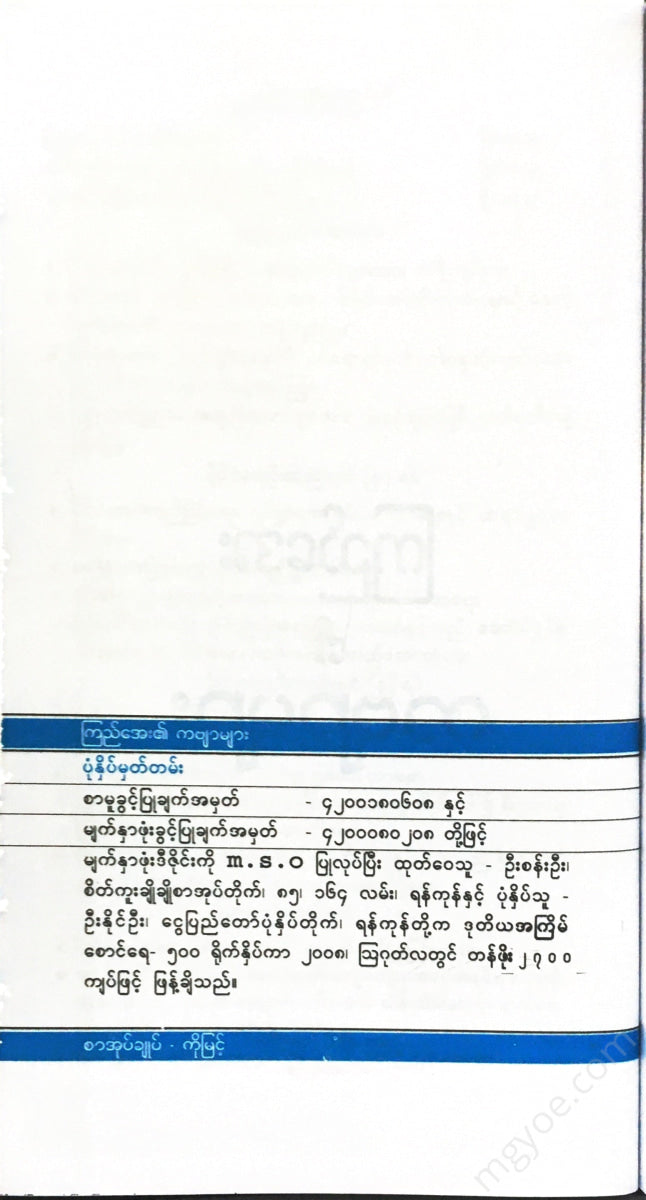 ကြည်အေး၏ ကဗျာများ
ပုံနှိပ်မှတ်တမ်း
စာမူခွင့်ပြုချက်အမှတ် - ၄၂၀၀၁၈၀၆၀၈ နှင့်
မျက်နှာဖုံးခွင့်ပြုချက်အမှတ် - ၄၂၀၀၀၈၀၂၀၈ တို့ဖြင့်
မျက်နှာဖုံးဒီဇိုင်းကို m.s.o ပြုလုပ်ပြီး ထုတ်ဝေသူ - ဦးစန်းဦး၊
စိတ်ကူးချိုချိုစာအုပ်တိုက်၊ ၈၅၊ ၁၆၄ လမ်း၊ ရန်ကုန်နှင့် ပုံနှိပ်သူ -
ဦးနိုင်ဦး၊ ငွေပြည်တော်ပုံနှိပ်တိုက်၊ ရန်ကုန်တို့က ဒုတိယအကြိမ်
စောင်ရေ- ၅၀၀ ရိုက်နှိပ်ကာ ၂၀၀၈၊ သြဂုတ်လတွင် တန်ဖိုး ၂၇၀၀
ကျပ်ဖြင့် ဖြန့်ချိသည်။
စာအုပ်ချုပ် - ကိုမြင့်
mgyoe.com